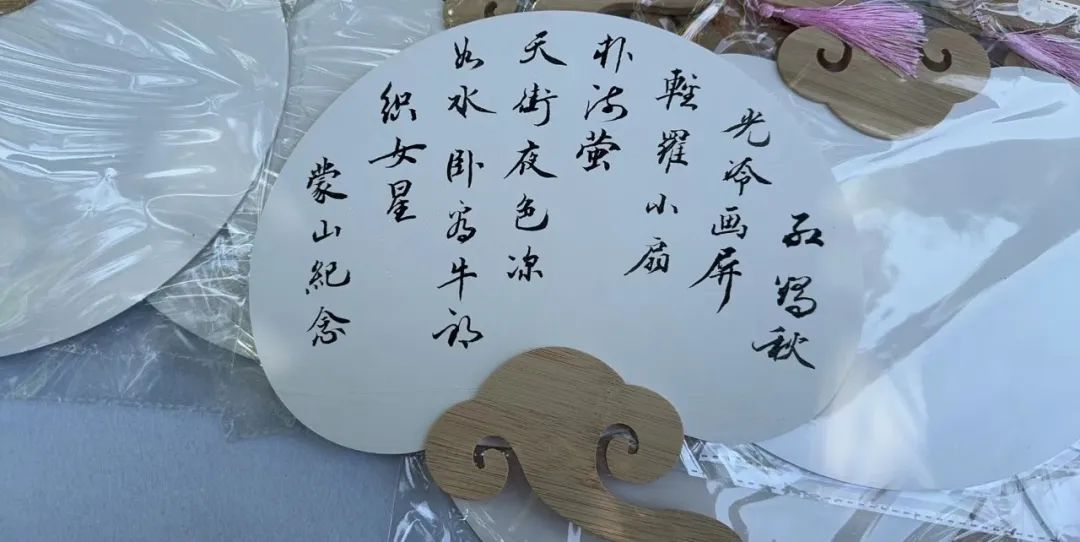 红烛秋
光冷画屏
輕羅小扇
扑流萤
天街夜色凉
如水卧看牛郎
织女星
蒙山紀念